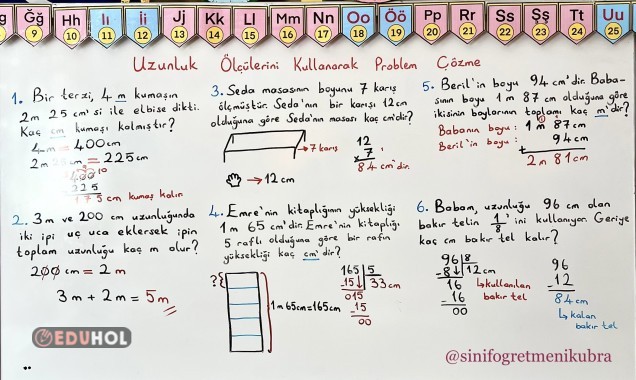 g Ğğ Hh Iı İi Jj Kk Ll Mm Nn Oo Öö Pp Rr Ss Şş Tt Uu
9 10 11 12 13 14 15 16 17 18 19 20 21 22 23 24 25
Uzunluk Ölçülerini Kullanarak Problem Çözme
1. Bir terzi, 4 m kumaşın
2m 25 cm'si ile elbise dikti.
Kaç cm kumaşı kalmıştır?
4m = 400cm
2m 25cm = 225cm
400
225
175 cm kumaş kalır.
2. 3m ve 200 cm uzunluğunda
iki ipi uç uca eklersek ipin
toplam uzunluğu kaç m olur?
200 cm = 2m
3m + 2m = 5m
3. Seda masasının boyunu 7 karış
ölçmüştür. Seda'nın bir karışı 12cm
olduğuna göre Seda'nın masası kaç cm'dir?
→7 karış
12
7
84 cm'dir.
→ 12 cm
4. Emre'nin kitaplığının yüksekliği
1m 65 cm'dir. Emre'nin kitaplığı
5 raflı olduğuna göre bir rafın
yüksekliği kaç cm'dir?
?
1m 65cm=165cm
165 5
-15 33cm
015
-15
00
5. Beril'in boyu 94 cm'dir. Baba-
sının boyu 1m 87 cm olduğuna göre
ikisinin boylarının toplamı kaç m'dir?
Babanın boyu: 1m 87cm
Beril'in boyu: 94cm
+
2m 81cm
6. Babam, uzunluğu 96 cm olan
bakır telin 1/8'ini kullanıyor. Geriye
kaç cm bakır tel kalır?
96 8
-8 12cm
16 ↳kullanılan
-16 bakır tel
00
96
-12
84cm
↳kalan
bakır tel
EDUHOL
@sinifogretmenikubra